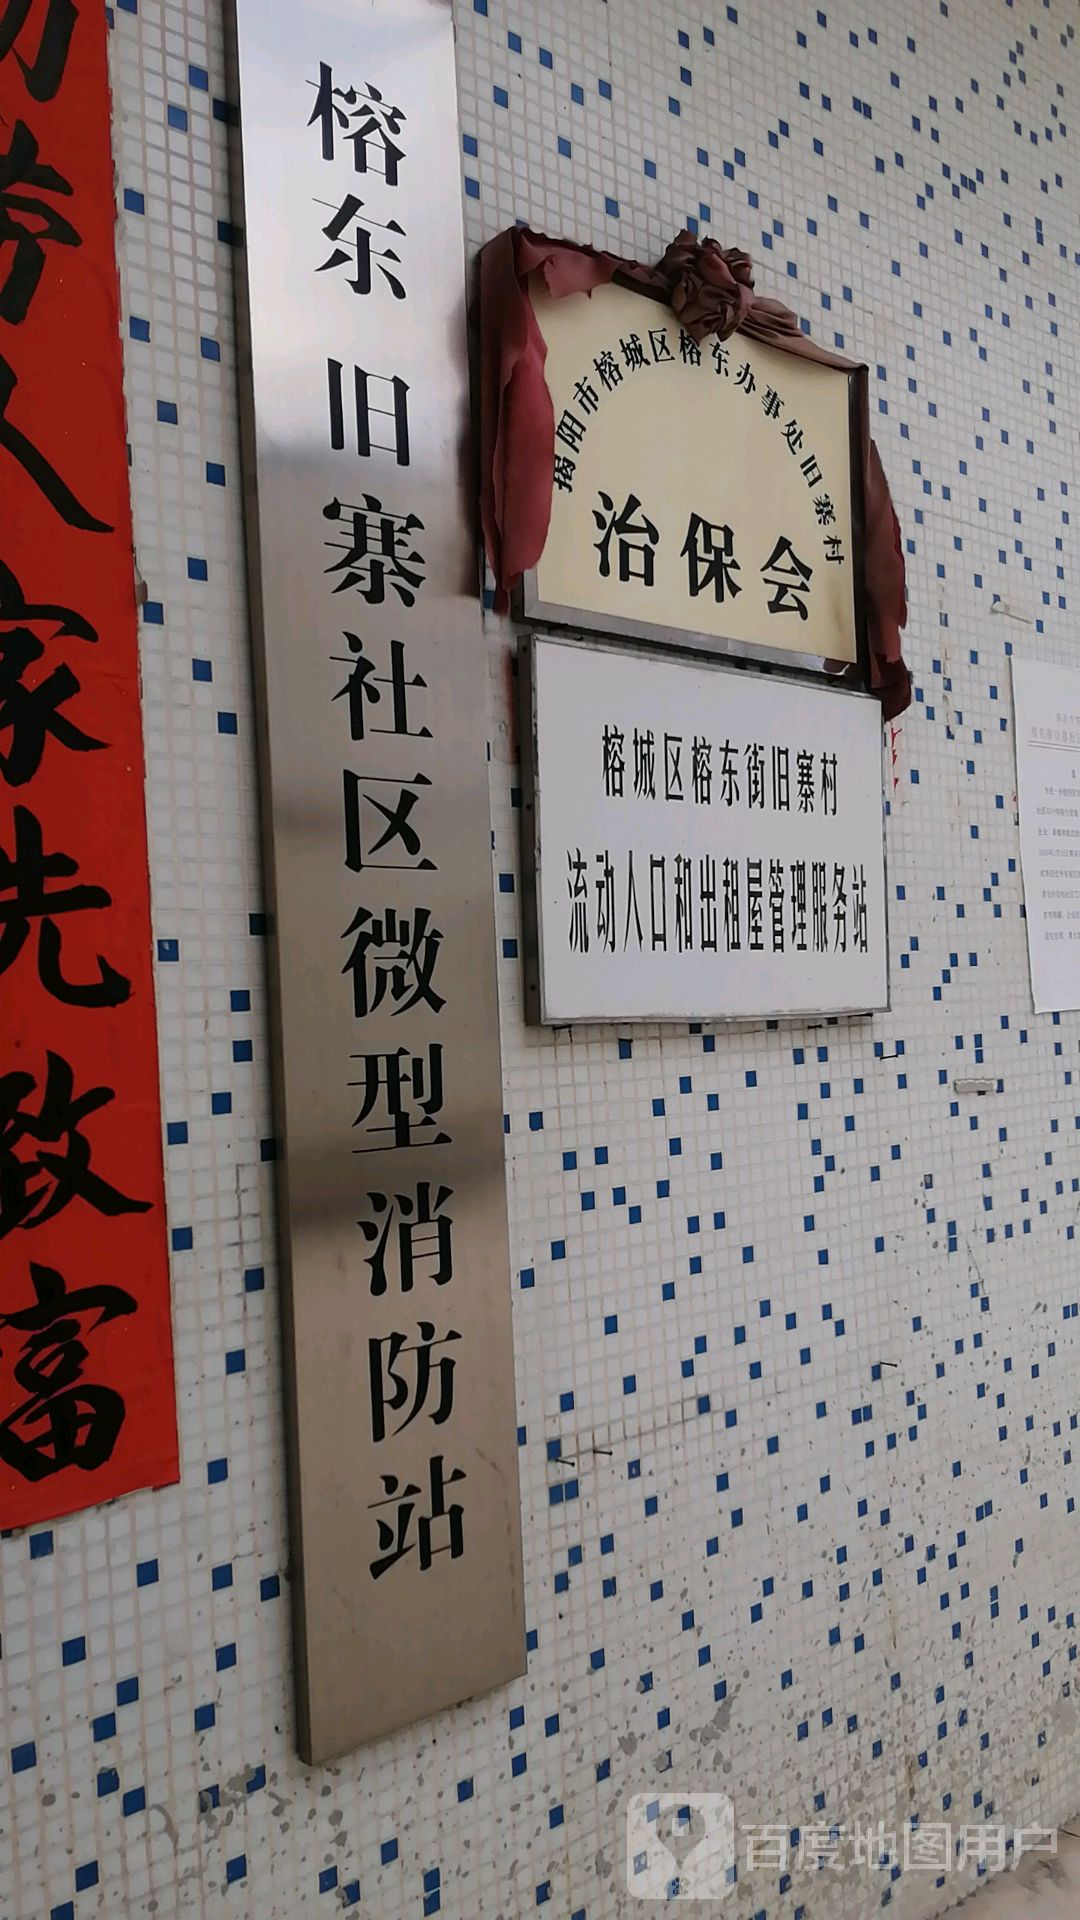 劳人家先致富
榕东旧寨社区微型消防站
揭阳市榕城区榕东办事处旧寨村
治保会
榕城区榕东街旧寨村
流动人口和出租屋管理服务站
百度地图用户